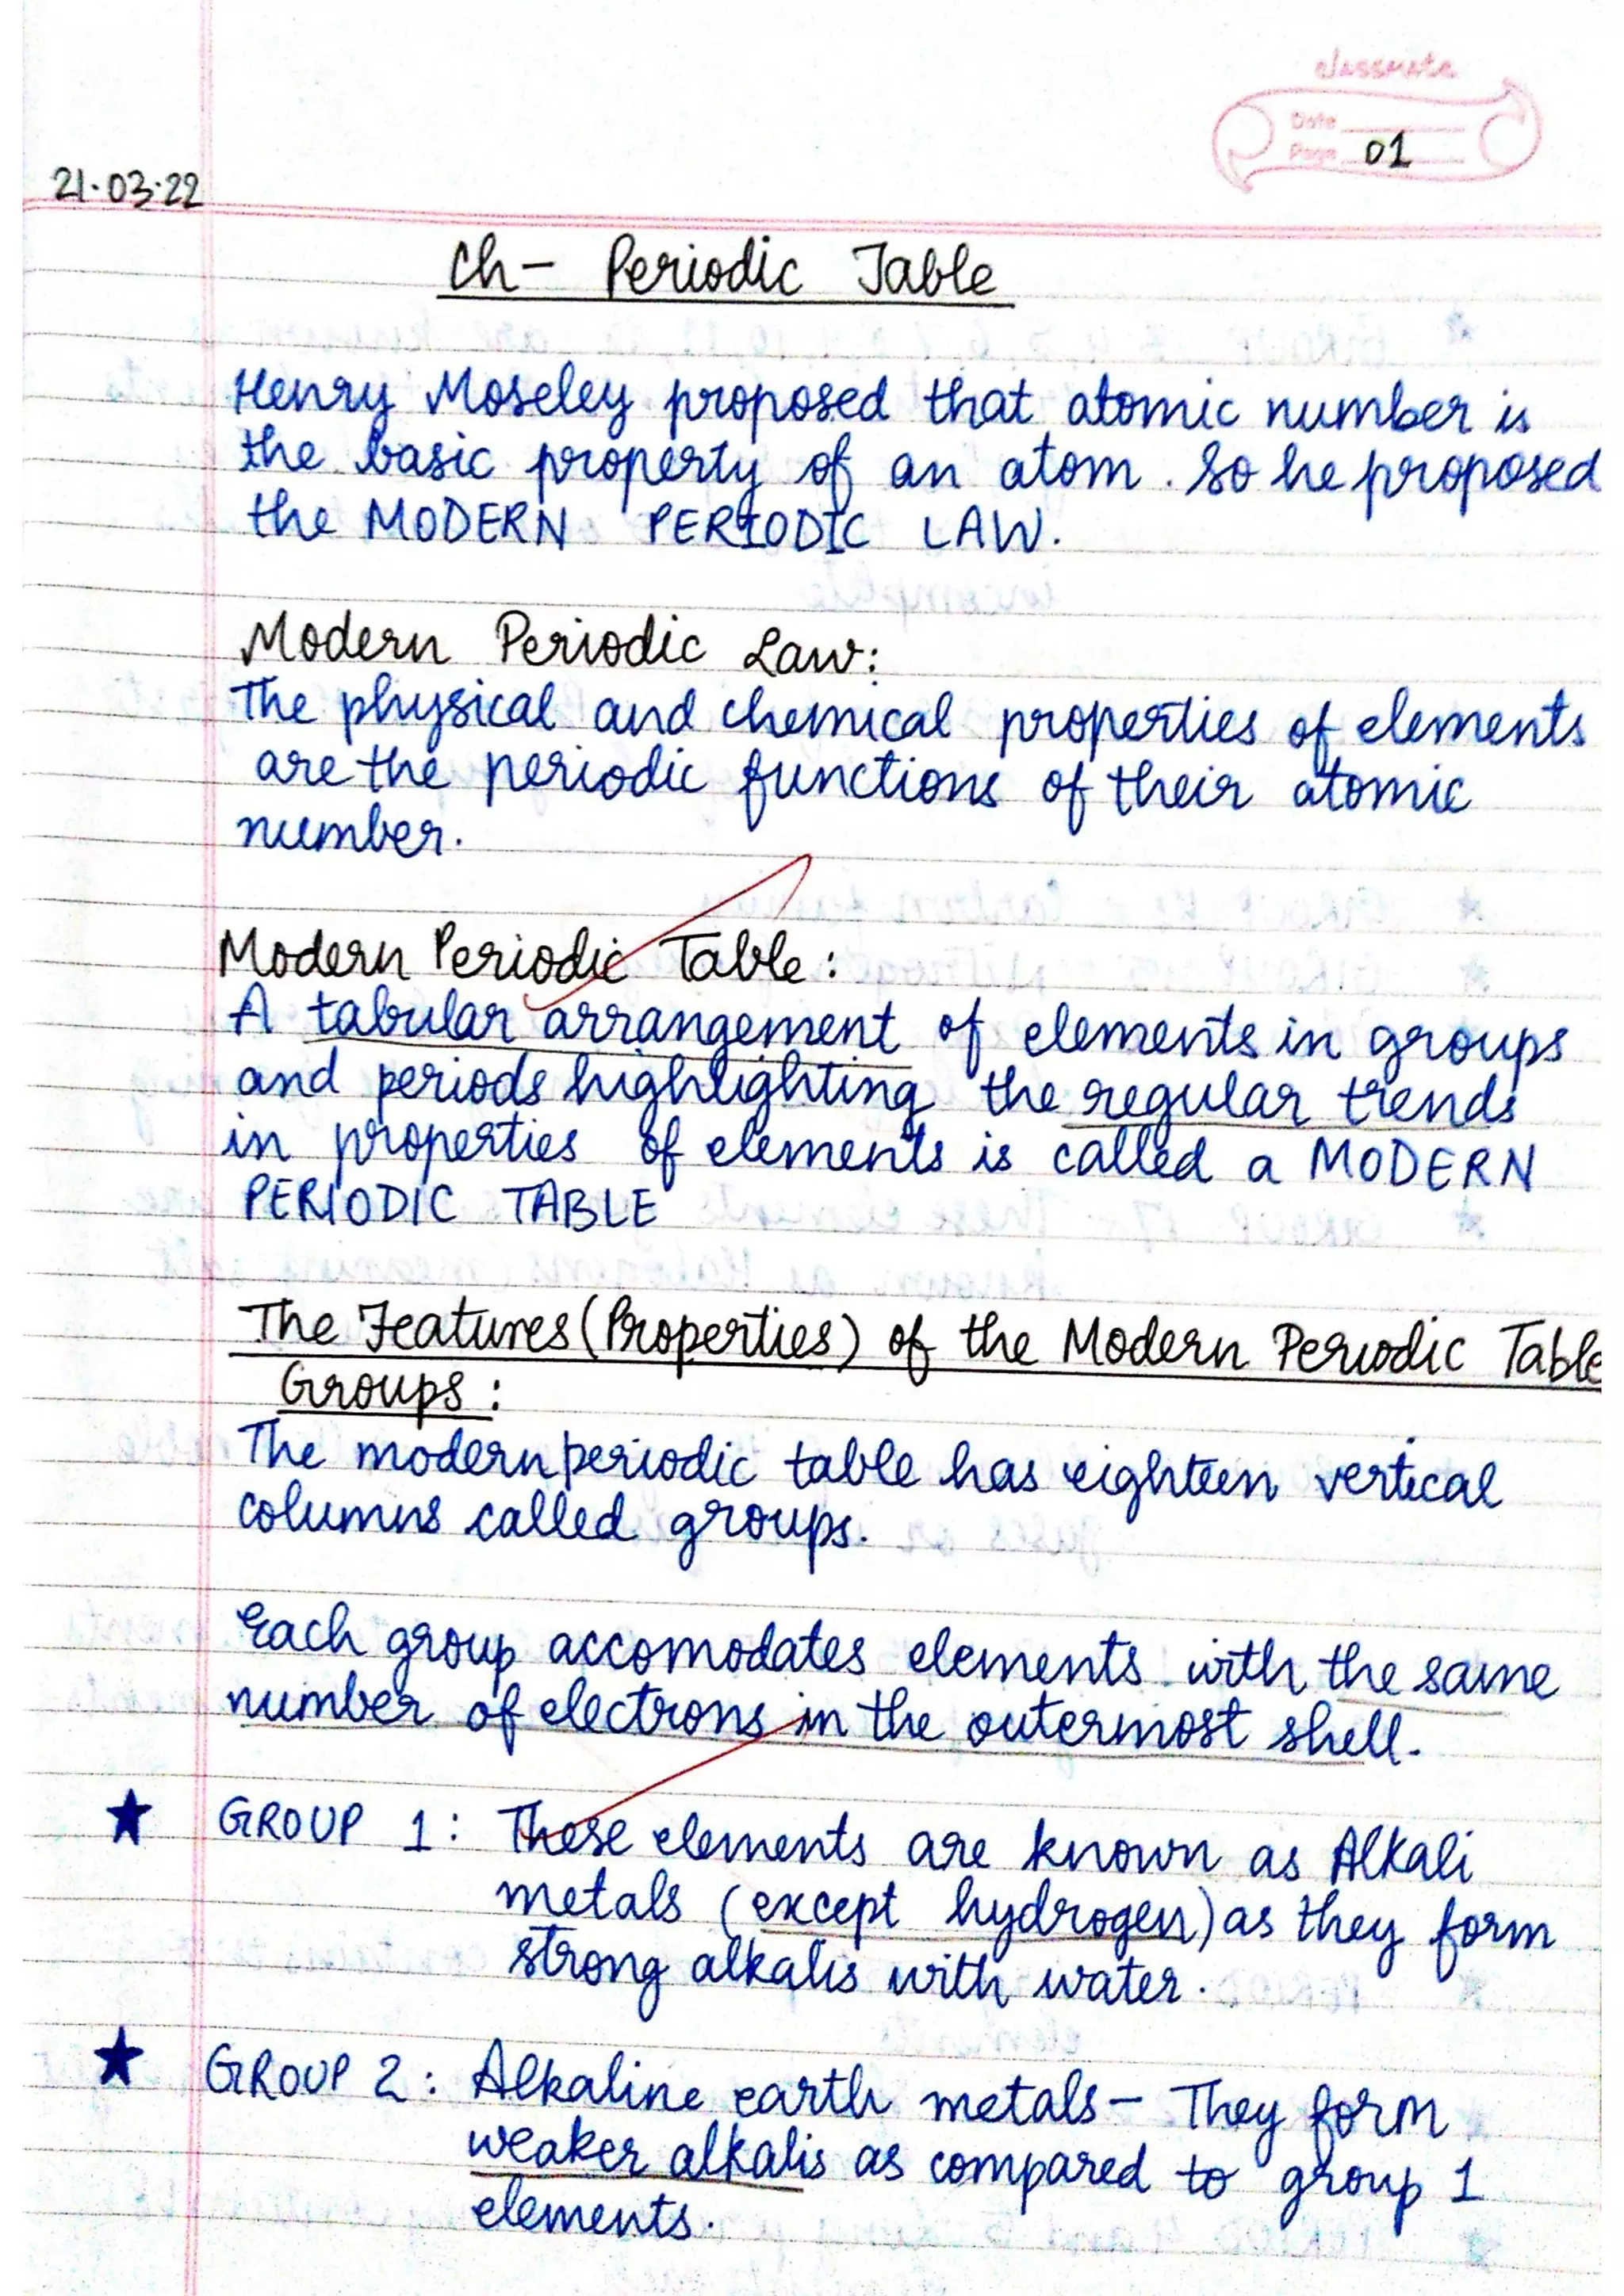 classmate
Date
Page 01
21.03.22
Ch- Periodic Table
Henry Moseley proposed that atomic number is
the basic property of an atom. So he proposed
the MODERN PERIODIC LAW.
Modern Periodic Law:
The physical and chemical properties of elements
are the periodic functions of their atomic
number.
Modern Periodic Table:
A tabular arrangement of elements in groups
and periods highlighting the regular trends
in properties of elements is called a MODERN
PERIODIC TABLE
The Features (Properties) of the Modern Periodic Table
Groups:
The modern periodic table has eighteen vertical
columns called groups.
Each group accomodates elements with the same
number of electrons in the outermost shell.
★ GROUP 1: These elements are known as Alkali
metals (except hydrogen) as they form
strong alkalis with water.
★ GROUP 2: Alkaline earth metals - They form
weaker alkalis as compared to group 1
elements.